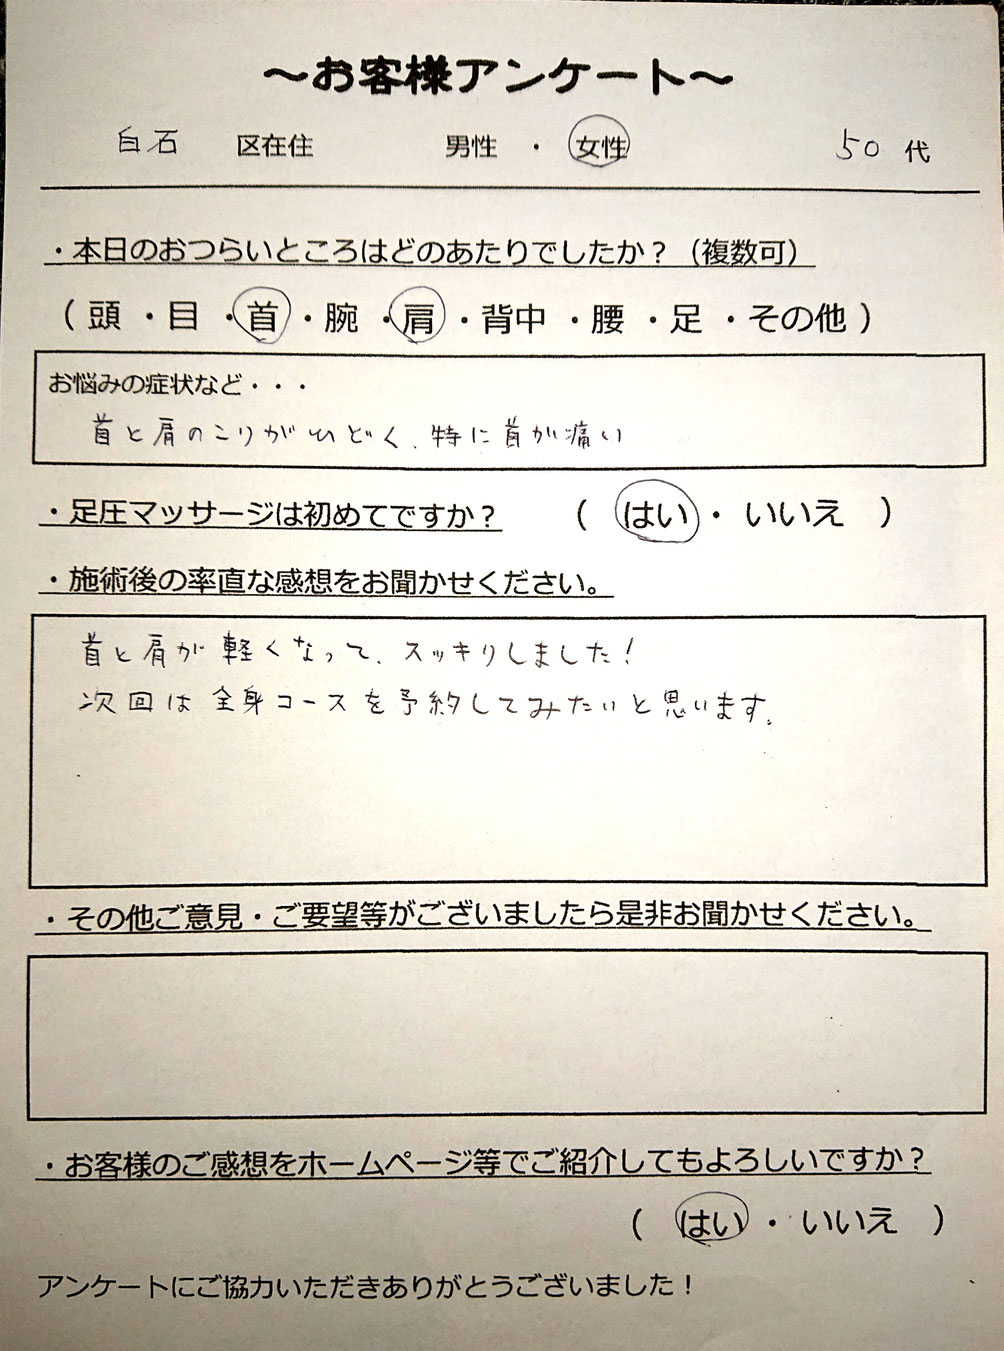 ～お客様アンケート～
白石 区在住 男性 ・ 女性 50 代
・本日のおつらいところはどのあたりでしたか？（複数可）
（ 頭 ・目 ・首 ・腕 ・肩 ・背中 ・腰 ・足 ・その他 ）
お悩みの症状など・・・
首と肩のこりがひどく、特に首が痛い
・足圧マッサージは初めてですか？ （ はい ・ いいえ ）
・施術後の率直な感想をお聞かせください。
首と肩が軽くなって、スッキリしました！
次回は全身コースを予約してみたいと思います。
・その他ご意見・ご要望等がございましたら是非お聞かせください。
・お客様のご感想をホームページ等でご紹介してもよろしいですか？
（ はい ・ いいえ ）
アンケートにご協力いただきありがとうございました！